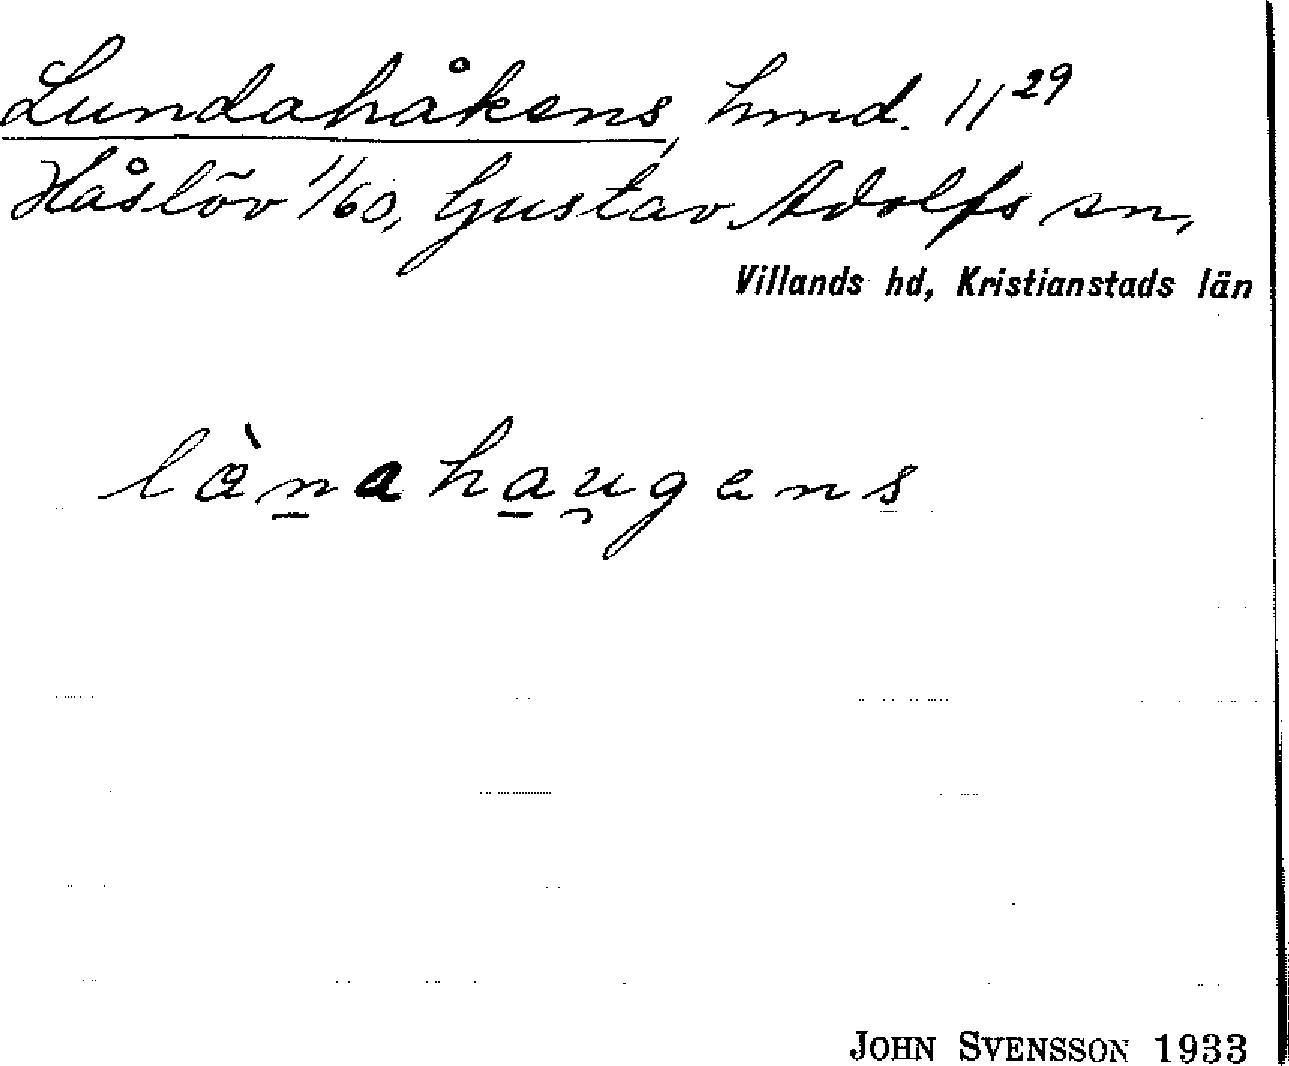 Lundahåkens, hmd. 11 29
Håslöv 1/60, Gustav Adolfs sn,
Villands hd, Kristianstads län
lànahaugens
JOHN SVENSSON 1933